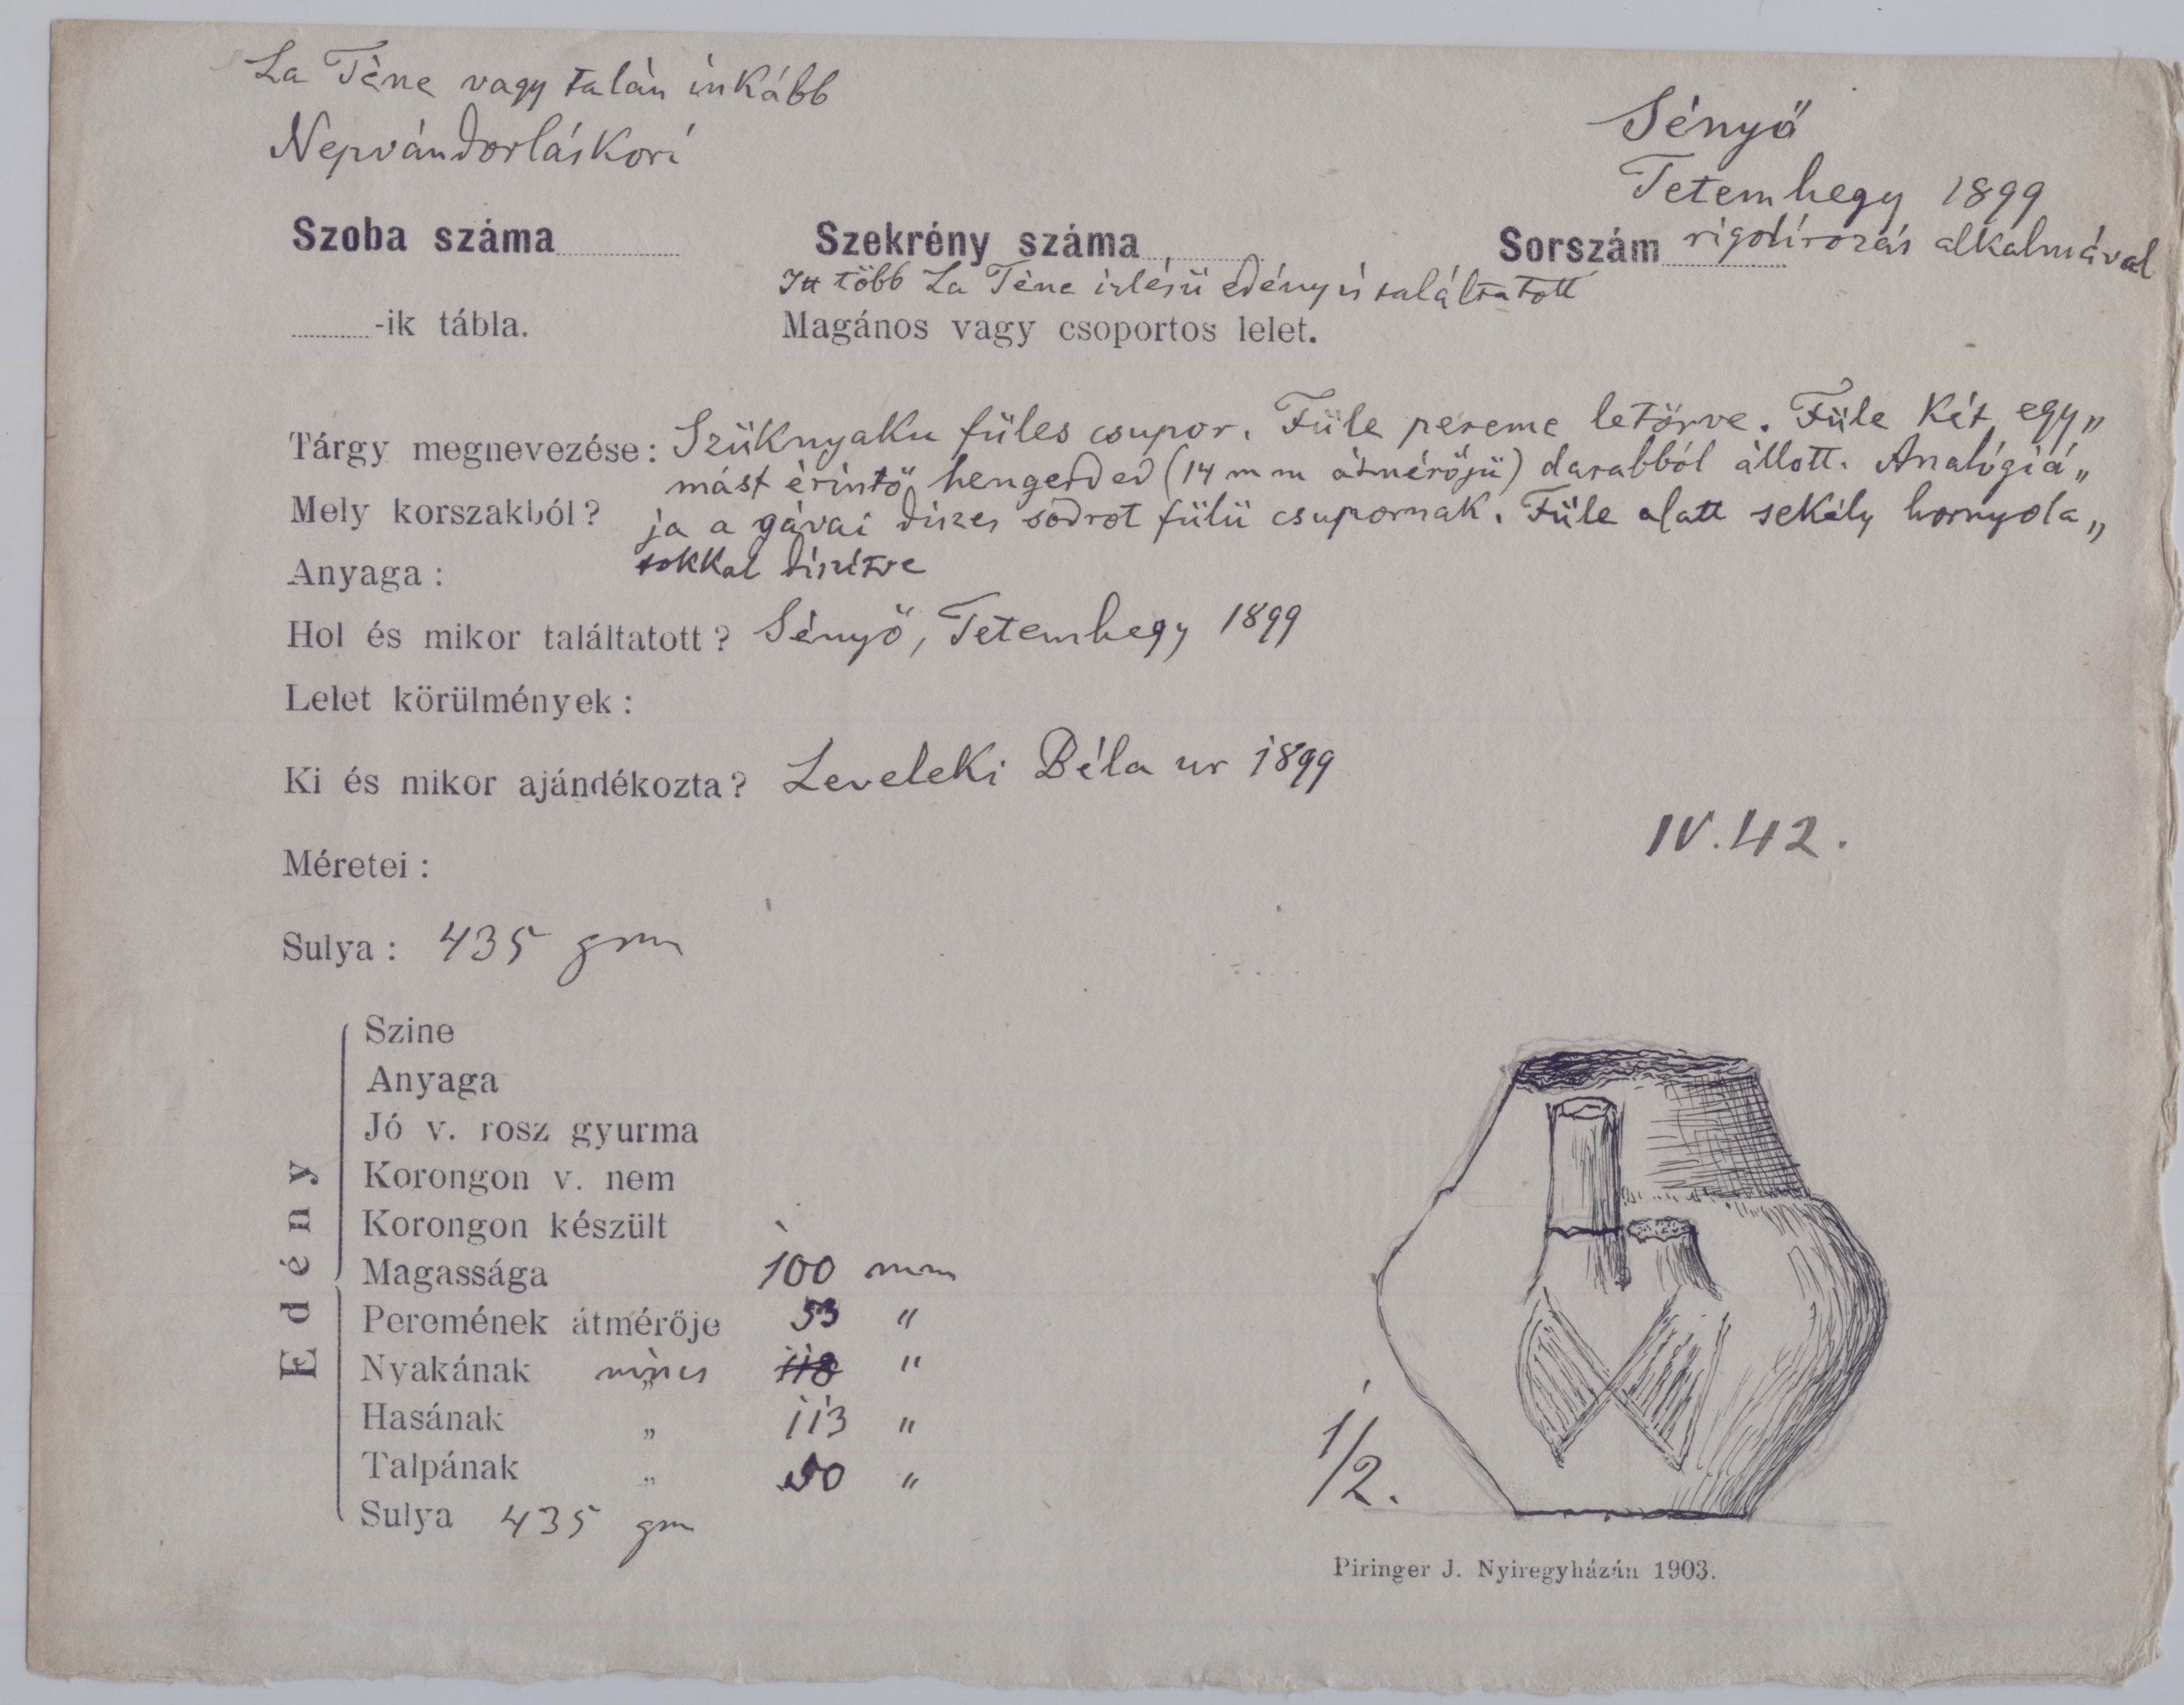 La Tène vagy talán inkább
Nepvándorláskori
Sényő
Tetemhegy 1899
rigolírozás alkalmával
Szoba száma
Szekrény száma
Sorszám
Itt több La Tène izlésü edény is találtatott
-ik tábla.
Magános vagy csoportos lelet.
Tárgy megnevezése: Szüknyaku füles csupor. Füle pereme letörve. Füle két egy„
mást érintő hengerded (14 mm átmérőjü) darabból állott. Analógiá„
Mely korszakból? ja a gávai diszes sodrot fülü csupornak. Füle alatt sekély hornyola„
Anyaga: tokkal diszitve
Hol és mikor találtatott? Sényő, Tetemhegy 1899
Lelet körülmények:
Ki és mikor ajándékozta? Leveleki Béla ur 1899
IV. 42.
Méretei:
Sulya: 435 grm
Edény
Szine
Anyaga
Jó v. rosz gyurma
Korongon v. nem
Korongon készült
Magassága 100 mm
Peremének átmérője 53 "
Nyakának „ nincs 118 "
Hasának „ 113 "
Talpának „ 50 "
Sulya 435 gm
1/2.
Piringer J. Nyiregyházán 1903.